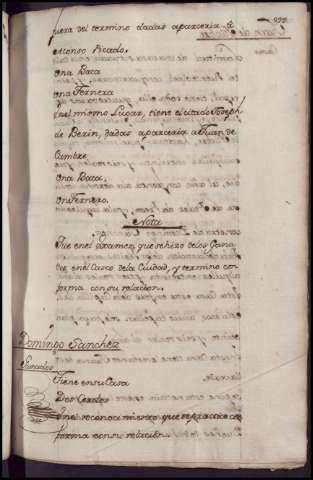 fuera del termino dadas aparceria à
Alonso Picado.
Una Baca
Una Ternera
Enel mismo Lugar, tiene el citado Joseph
de Berin, dadas aparceria à Juan de
Cumbre
Una Baca
Un Ternero.
Nota
Fue enel examen, que sehizo delos Gana
dos, enel Casco dela Ciudad, y termino con
forma con su relacion.
Domingo Sanchez
Tiene en su Casa
Dos Cerdos
Enel reconocimiento que sepractico con
forma consu relacion.